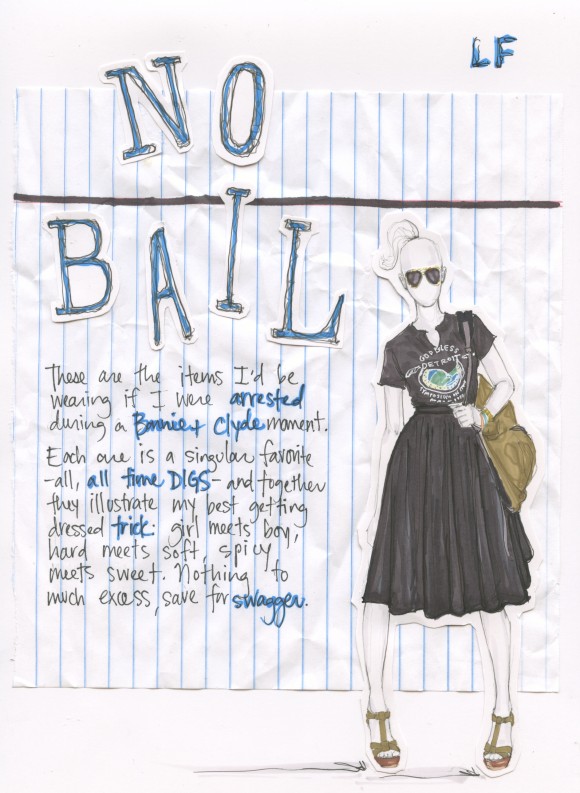 LF
NO
BAIL
These are the items I'd be
wearing if I were arrested
during a Bonnie + Clyde moment.
Each one is a singular favorite
-all, all time DIGS- and together
they illustrate my best getting
dressed trick: girl meets boy,
hard meets soft, spicy
meets sweet. Nothing to
much excess, save for swagger.
GOD BLESS
DETROIT